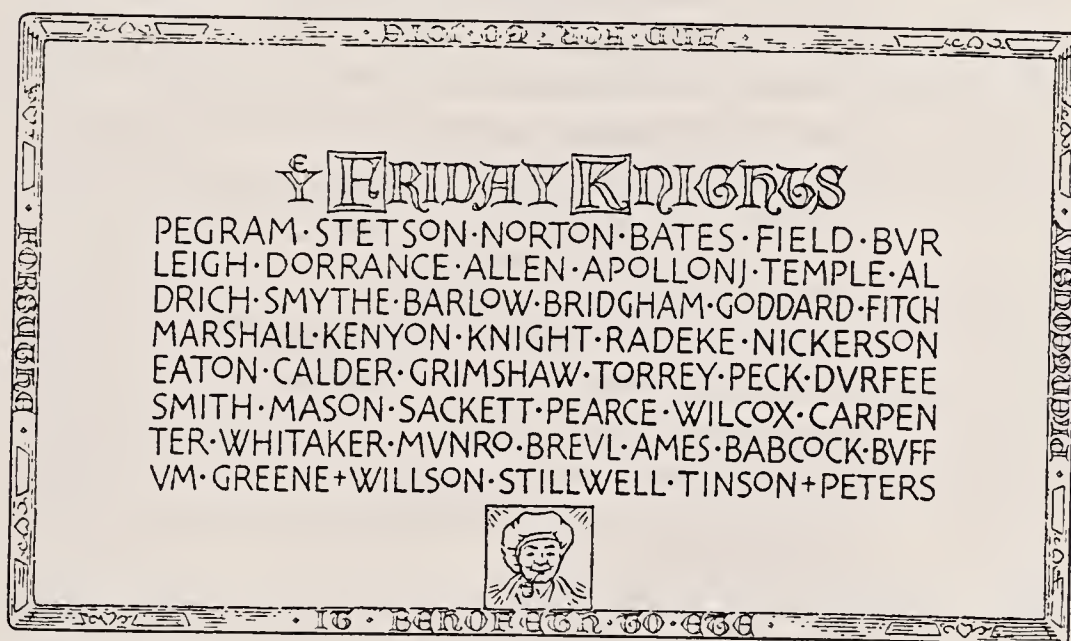 YE FRIDAY KNIGHTS
PEGRAM·STETSON·NORTON·BATES·FIELD·BVR
LEIGH·DORRANCE·ALLEN·APOLLONJ·TEMPLE·AL
DRICH·SMYTHE·BARLOW·BRIDGHAM·GODDARD·FITCH
MARSHALL·KENYON·KNIGHT·RADEKE·NICKERSON
EATON·CALDER·GRIMSHAW·TORREY·PECK·DVRFEE
SMITH·MASON·SACKETT·PEARCE·WILCOX·CARPEN
TER·WHITAKER·MVNRO·BREVL·AMES·BABCOCK·BVFF
VM·GREENE+WILLSON·STILLWELL·TINSON+PETERS
· IT · BEHOFETH · TO · ETE ·